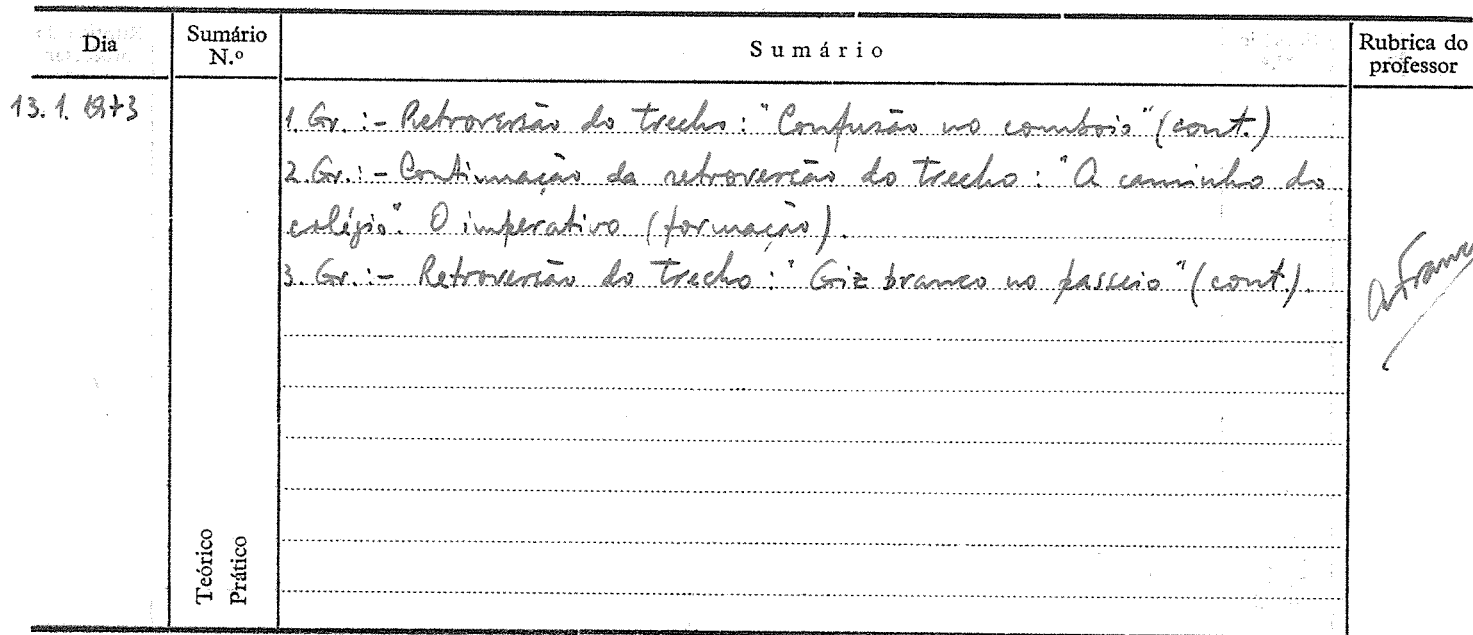 Dia
Sumário
N.º
Sumário
Rubrica do
professor
13.1.1973
1. Gr.:- Retroversão do trecho: "Confusão no comboio" (cont.)
2. Gr.:- Continuação da retroversão do trecho: "A caminho do
colégio". O imperativo (formação).
3. Gr.:- Retroversão do trecho: "Giz branco no passeio" (cont).
Teórico
Prático